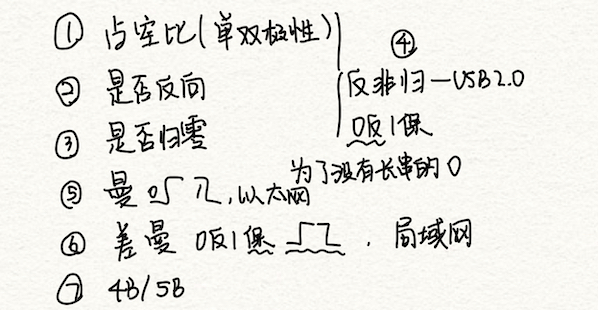 ① 占空比(单双极性)
② 是否反向
③ 是否归零
④
反非归一USB2.0
0反1保
为了没有长串的0
⑤ 曼 0 1,以太网
⑥ 差曼 0反1保 , 局域网
⑦ 4B/5B